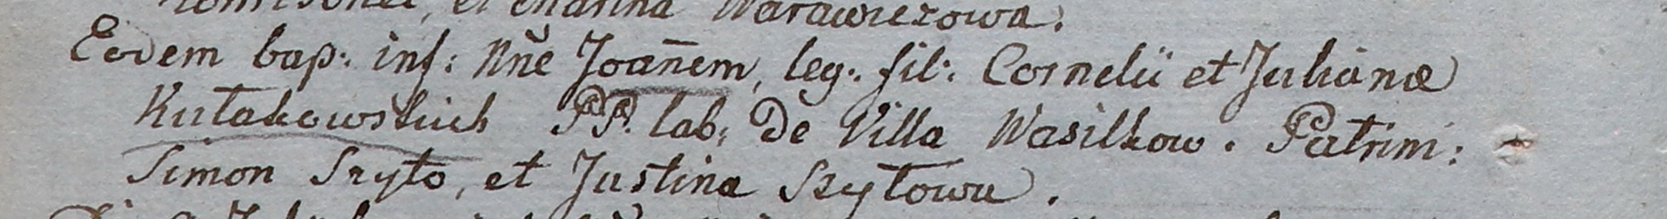 et Marina Warawiczowa.
Eodem bap: inf: Nñe Joañem, leg: fil: Cornelii et Julianæ
Kutakowskich PP. lab: de Villa Wasilkow. Patrini:
Simon Szyto, et Justina Szytowa.